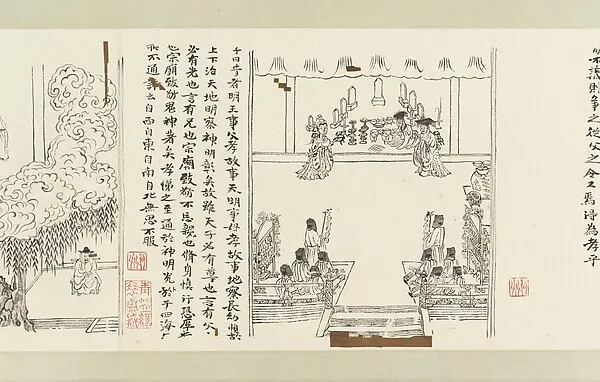 不義則爭之從父之令又焉得為孝乎
子曰昔者明王事父孝故事天明事母孝故事地察長幼順故
上下治天地明察神明彰矣故雖天子必有尊也言有父也
必有先也言有兄也宗廟致敬不忘親也脩身慎行恐辱先
也宗廟致敬鬼神著矣孝悌之至通於神明光於四海無
所不通詩云自西自東自南自北無思不服